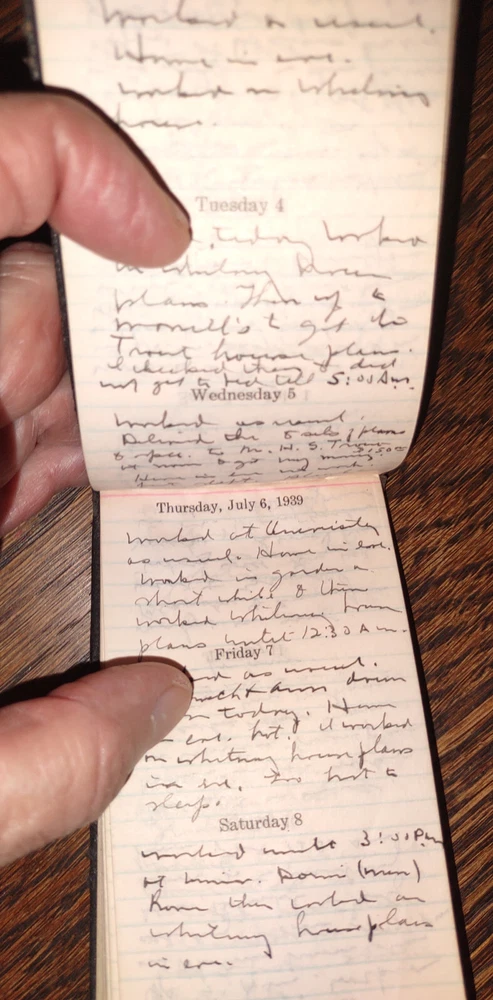 worked as usual.
Home in eve.
worked on Whitney
house.
Tuesday 4
today worked
on Whitney House
plans. Then up to
Morrill's to get the
Trout house plans.
I checked them & did
not get to bed till 5:00 A.m.
Wednesday 5
Worked as usual.
Delivered the 5 sets of plans
& spec. to Mr. H. S. Trout
$150.00
Thursday, July 6, 1939
Worked at University
as usual. Home in eve.
Worked in garden a
short while & then
worked Whitney house
plans until 12:30 A.m.
Friday 7
as usual.
down
today. Home
in eve. hot. I worked
on Whitney house plans
in eve. Too hot to
sleep.
Saturday 8
worked until 3:00 P.m
at Univ.
home then worked on
Whitney house plans
in eve.